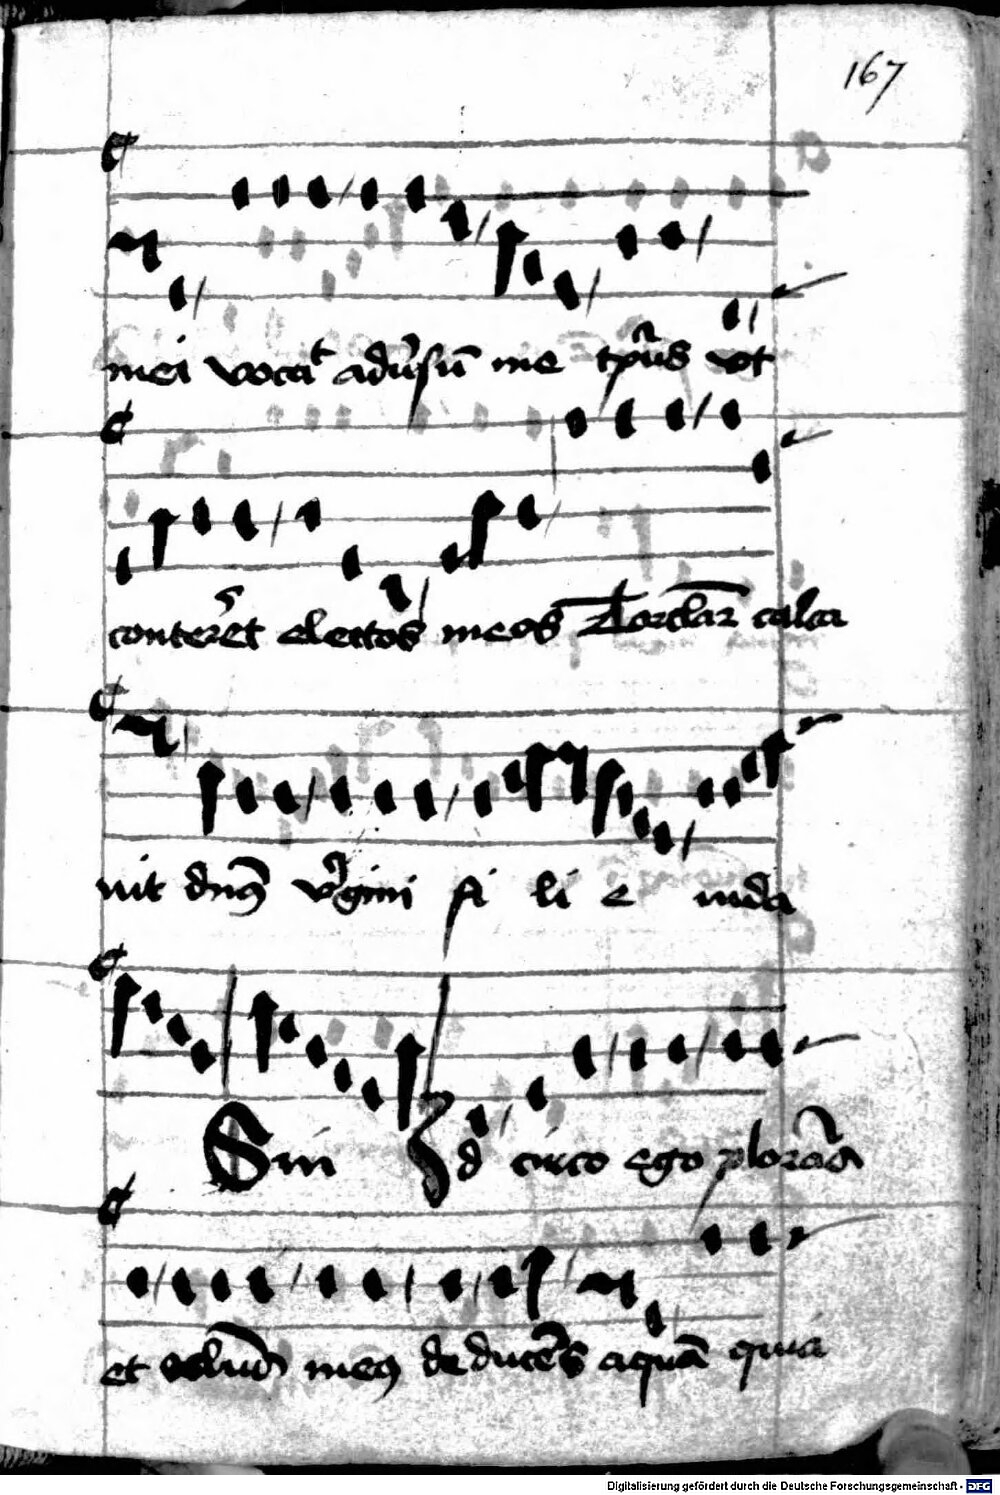 167
mei vocat adu'su me tp'us vt
conteret electos meos Torclar calca
uit dns v'gini fi li e iuda
Syn Id circo ego plorās
et oclus meus deducēs aquā quia
Digitalisierung gefördert durch die Deutsche Forschungsgemeinschaft - DFG